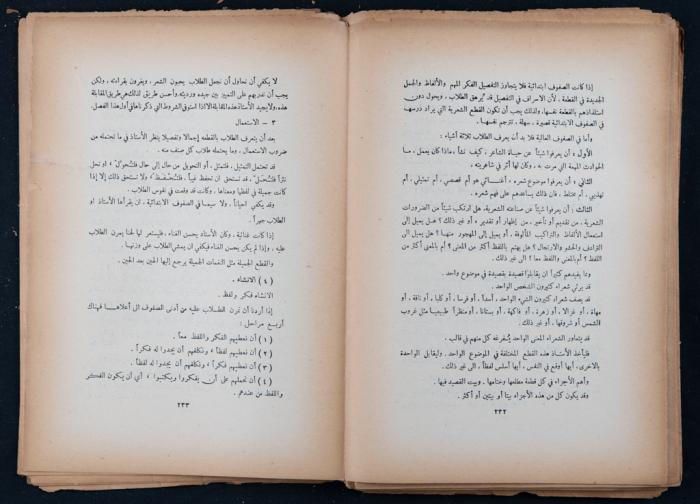 إذا كانت الصفوف ابتدائية فلا يتجاوز التفصيل الفكر المهم والألفاظ والجمل
الجديدة في القطعة، لأن الاسراف في التفصيل قد يُرهق الطلاب، ويحول دون
استفادتهم بالقطعة نفسها، ولذلك يجب أن تكون القطع الشعرية التي يراد درسها
في الصفوف الابتدائية قصيرة، سهلة،
وأما في الصفوف العالية فلا بد أن يعرف الطلاب ثلاثة أشياء:
الأول: أن يعرفوا شيئاً عن حياة الشاعر، كيف نشأ، ماذا كان يعمل، ما
الحوادث المهمة التي مرت به، وكان لها أثر في شاعريته.
الثاني: أن يعرفوا موضوع شعره، أغنائي هو أم قصصي، أم تمثيلي، أم
تهذيبي، أم مختلط، فان ذلك يساعدهم على فهم شعره.
الثالث: أن يعرفوا شيئاً عن صناعته الشعرية. هل ارتكب شيئاً من الضرورات
الشعرية، من تقديم أو تأخير، من إظهار أو تقدير، أو غير ذلك؟ هل يميل إلى
استعمال الألفاظ والتراكيب المألوفة، أو يميل إلى المهجور منها؟ هل يميل إلى
الترادف والحشو والارتجال؟ هل يهتم باللفظ أكثر من المعنى؟ أم بالمعنى أكثر من
اللفظ؟ أم بالمعنى واللفظ معاً؟ الى غير ذلك.
ومما يفيدهم كثيراً ان يقابلوا قصيدة بقصيدة في موضوع واحد.
قد يرثي شعراء كثيرون الشخص الواحد.
قد يصف شعراء كثيرون الشيء الواحد، أسداً، أو فرسا، أو كلبا، أو ناقة، أو
مهاة، أو غزالا، أو زهرة، أو فاكهة، أو بستانا، أو منظراً طبيعياً مثل غروب
الشمس أو شروقها، أو غير ذلك.
قد يتعاور الشعراء المعنى الواحد يُفرغه كل منهم في قالب.
فليأخذ الأستاذ هذه القطع المختلفة في الموضوع الواحد، وليقابل الواحدة
بالاخرى، أيها أوقع في النفس، أيها أسلس لفظاً، الى غير ذلك.
وأهم الأجزاء في كل قطعة مطلعها وختامها، وبيت القصيد فيها.
وقد يكون كل من هذه الأجزاء بيتا أو بيتين أو أكثر.
٢٣٢
لا يكفي أن نحاول أن نجعل الطلاب يحبون الشعر، ويغرون بقراءته، ولكن
يجب أن ندربهم على التمييز بين جيده ورديئه، وأحسن طريق لذلك هي طريق المقابلة
هذه، ولا يجيد الأستاذ هذه المقابلة الا اذا استوفى الشروط التي ذكرناها في أول هذا الفصل.
٣ — الاستعمال
بعد أن يتعرف الطلاب بالقطعة إجمالاً وتفصيلا ينظر الأستاذ في ما تحتمله من
ضروب الاستعمال، وما يحتمله طلاب كل صنف منه.
قد تحتمل التمثيل، فلتمثل، أو التحويل من حال إلى حال فلتُحوّل، او تحل
نثراً فلتُحلّ، قد تستحق ان تحفظ غيباً، فلتُحفظ، ولا تستحق ذلك إلا إذا
كانت جميلة في لفظها ومعناها، وكانت قد وقعت في نفوس الطلاب.
وقد يكفي احياناً، ولا سيما في الصفوف الابتدائية، ان يقرأها الأستاذ او
الطلاب جهراً.
إذا كانت غنائية، وكان الأستاذ يحسن الغناء، فليستعر لها لحنا يمرن الطلاب
عليه، وإذا لم يكن يحسن الغناء فيكفي ان يمشي الطلاب على وزنها.
والقطع الجميلة مثل النغمات الجميلة يرجع إليها الحين بعد الحين.
(٤) الانشاء.
الانشاء فكر ولفظ.
إذا أردنا أن نمرن الطلاب عليه من أدنى الصفوف الى أعلاها فهناك
أربع مراحل:
(١) أن نعطيهم الفكر واللفظ معاً.
(٢) أن نعطيهم لفظاً، ونكلفهم أن يجدوا له فكراً.
(٣) أن نعطيهم فكراً، ونكلفهم أن يجدوا له لفظاً.
(٤) أن نحملهم على أن يفكروا ويكتبوا، أي أن يكون الفكر
واللفظ من عندهم.
٢٣٣